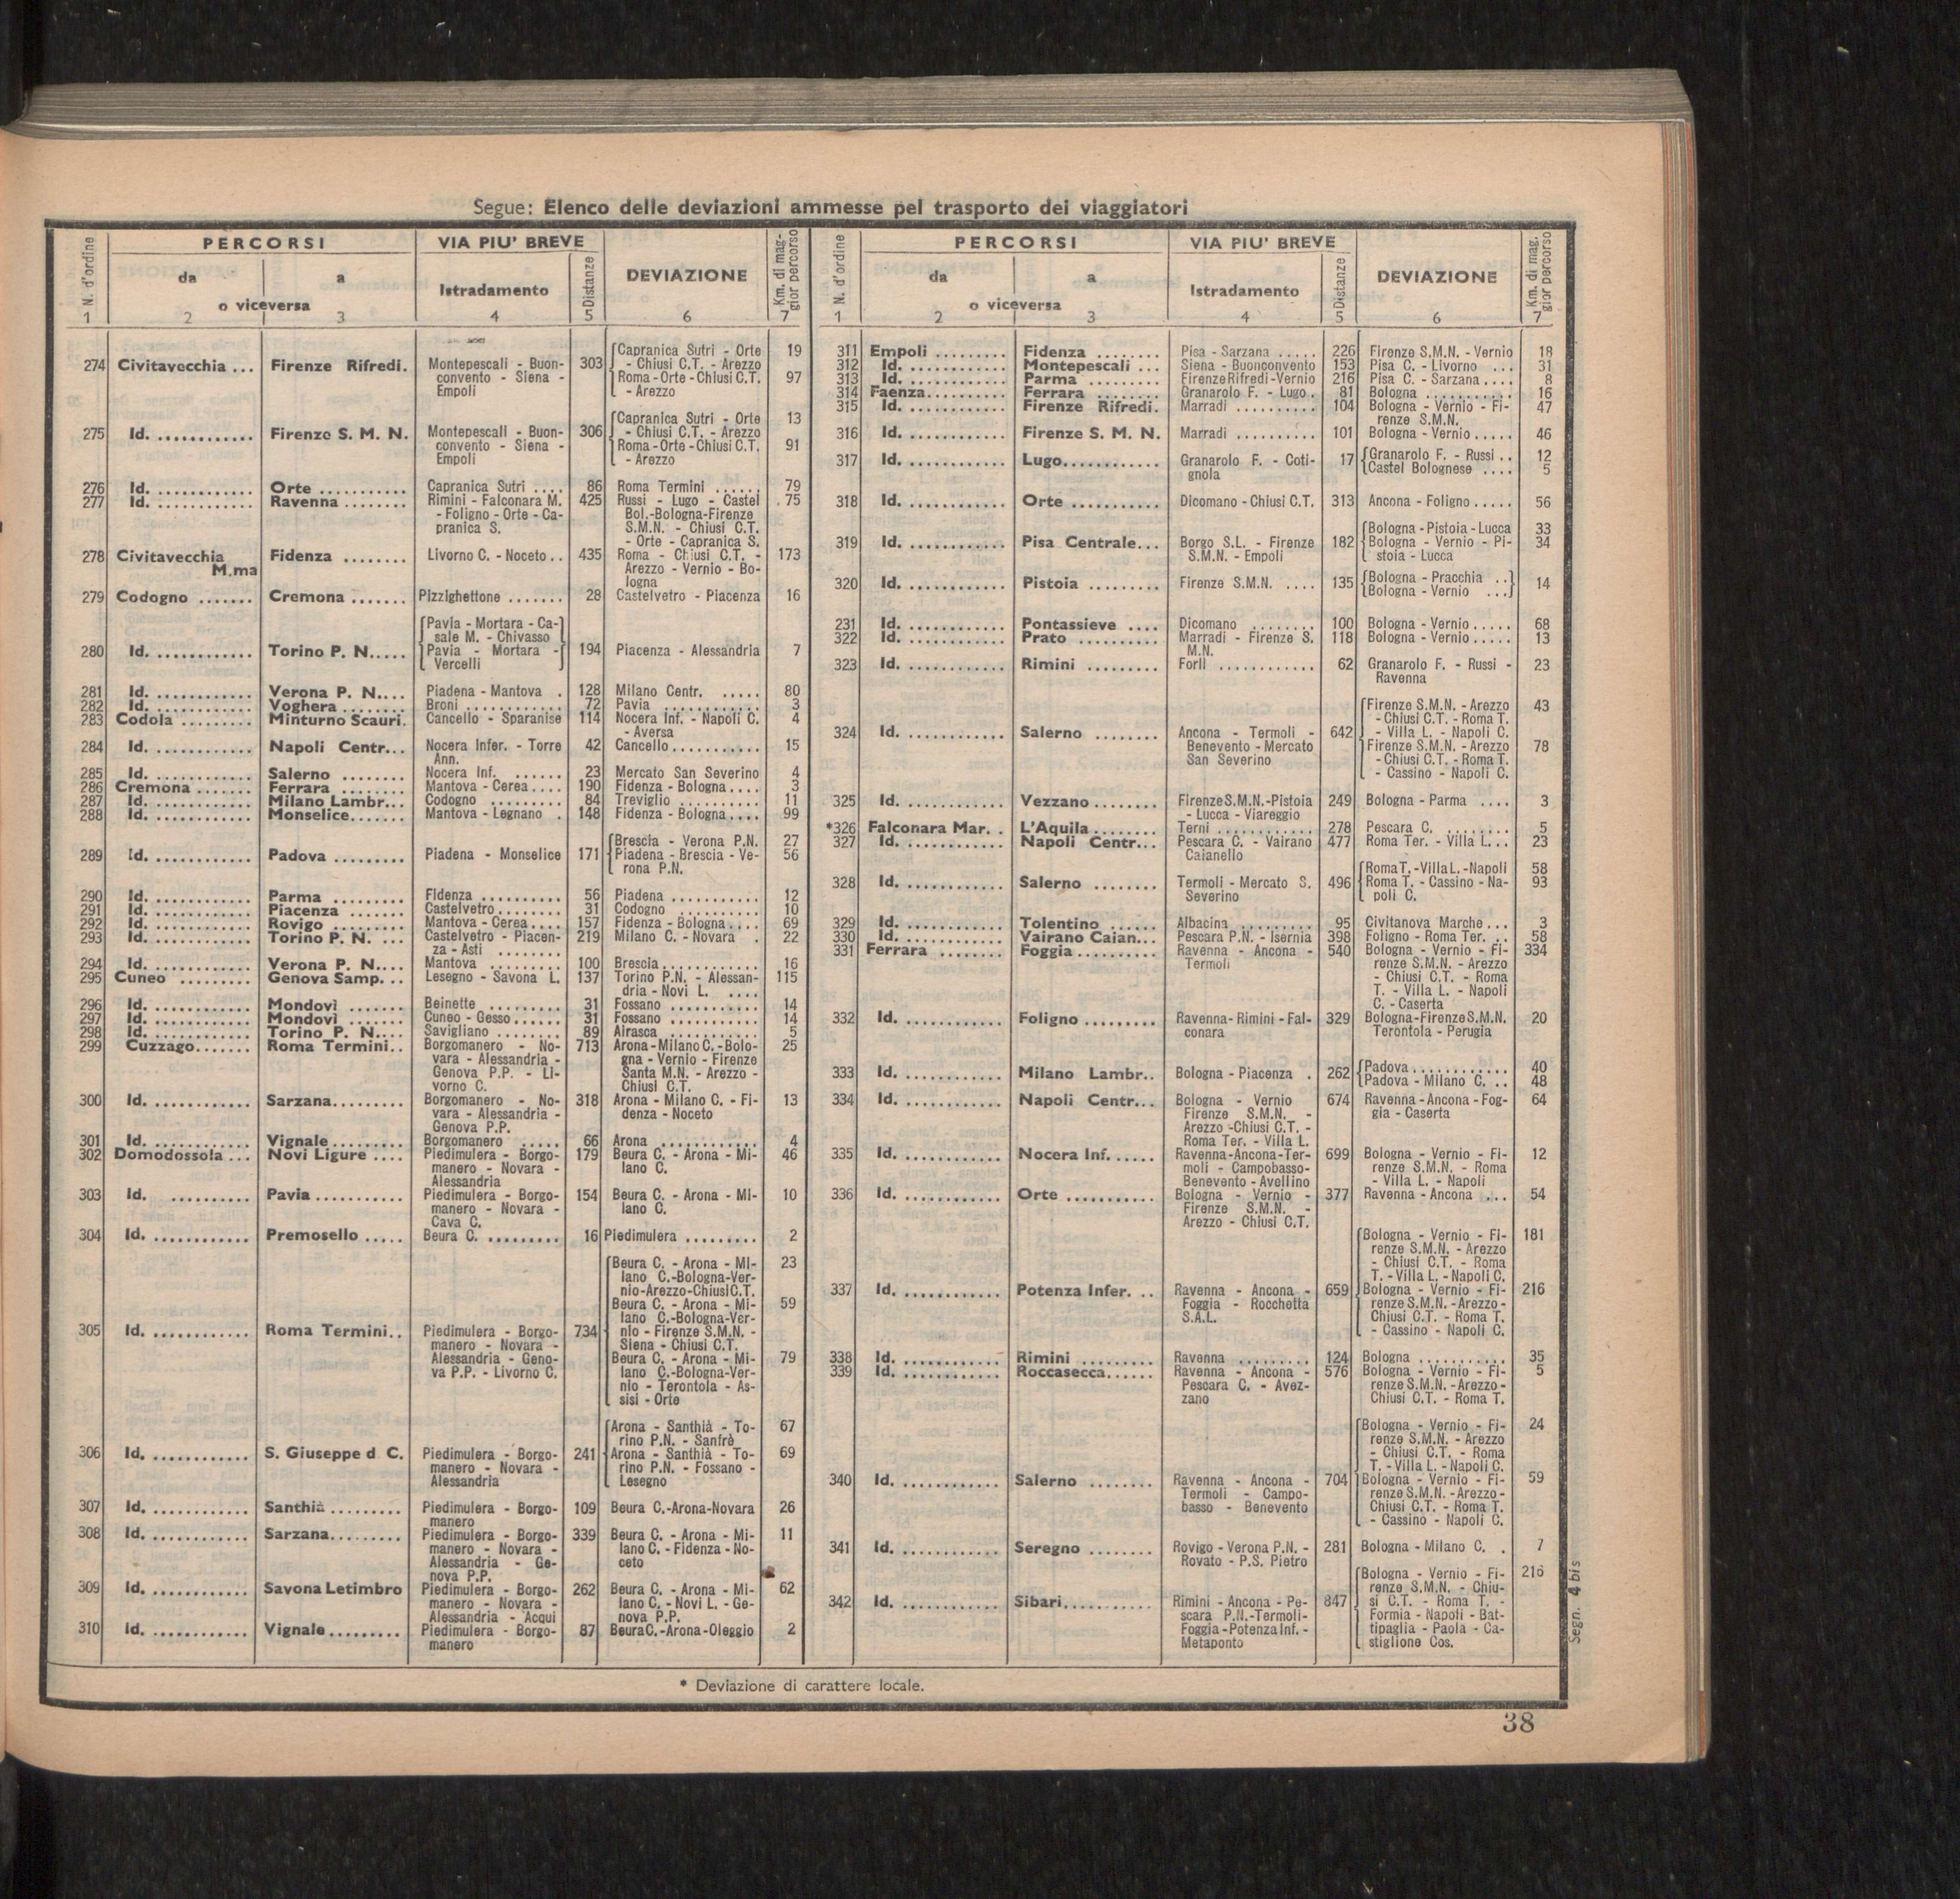 Segue: Elenco delle deviazioni ammesse pel trasporto dei viaggiatori
N. d'ordine
PERCORSI
VIA PIU' BREVE
DEVIAZIONE
Km. di mag-
gior percorso
da
a
o viceversa
Istradamento
Distanze
1 2 3 4 5 6 7
274 Civitavecchia ... Firenze Rifredi. Montepescali - Buon- 303 Capranica Sutri - Orte 19
convento - Siena - - Chiusi C.T. - Arezzo
Empoli Roma - Orte - Chiusi C.T. 97
- Arezzo
275 Id. ............ Firenze S. M. N. Montepescali - Buon- 306 Capranica Sutri - Orte 13
convento - Siena - - Chiusi C.T. - Arezzo
Empoli Roma - Orte - Chiusi C.T. 91
- Arezzo
276 Id. ............ Orte ........... Capranica Sutri .... 86 Roma Termini ...... 79
277 Id. ............ Ravenna ........ Rimini - Falconara M. 425 Russi - Lugo - Castel 75
- Foligno - Orte - Ca- Bol.-Bologna-Firenze
pranica S. S.M.N. - Chiusi C.T.
- Orte - Capranica S.
278 Civitavecchia Fidenza ........ Livorno C. - Noceto .. 435 Roma - Chiusi C.T. - 173
M.ma Arezzo - Vernio - Bo-
logna
279 Codogno ....... Cremona ....... Pizzighettone ....... 28 Castelvetro - Piacenza 16
280 Id. ............ Torino P. N..... Pavia - Mortara - Ca- 194 Piacenza - Alessandria 7
sale M. - Chivasso
Pavia - Mortara -
Vercelli
281 Id. ............ Verona P. N.... Piadena - Mantova . 128 Milano Centr. ..... 80
282 Id. ............ Voghera ........ Broni ............ 72 Pavia ............ 3
283 Codola ......... Minturno Scauri. Cancello - Sparanise 114 Nocera Inf. - Napoli C. 4
- Aversa
284 Id. ............ Napoli Centr... Nocera Infer. - Torre 42 Cancello........... 15
Ann.
285 Id. ............ Salerno ........ Nocera Inf. ...... 23 Mercato San Severino 4
286 Cremona ....... Ferrara ........ Mantova - Cerea.... 190 Fidenza - Bologna.... 3
287 Id. ............ Milano Lambr... Codogno ......... 84 Treviglio .......... 11
288 Id. ............ Monselice....... Mantova - Legnano . 148 Fidenza - Bologna.... 99
289 Id. ............ Padova ......... Piadena - Monselice 171 Brescia - Verona P.N. 27
Piadena - Brescia - Ve- 56
rona P.N.
290 Id. ............ Parma ......... Fidenza .......... 56 Piadena ........... 12
291 Id. ............ Piacenza ....... Castelvetro........ 31 Codogno .......... 10
292 Id. ............ Rovigo ......... Mantova - Cerea.... 157 Fidenza - Bologna.... 69
293 Id. ............ Torino P. N. ... Castelvetro - Piacen- 219 Milano C. - Novara . 22
za - Asti ........
294 Id. ............ Verona P. N.... Mantova ......... 100 Brescia............ 16
295 Cuneo ......... Genova Samp. .. Lesegno - Savona L. 137 Torino P.N. - Alessan- 115
dria - Novi L. ....
296 Id. ............ Mondovì ....... Beinette ......... 31 Fossano ........... 14
297 Id. ............ Mondovì ....... Cuneo - Gesso...... 31 Fossano ........... 14
298 Id. ............ Torino P. N.... Savigliano ........ 89 Airasca ........... 5
299 Cuzzago....... Roma Termini.. Borgomanero - No- 713 Arona - Milano C. - Bolo- 25
vara - Alessandria - gna - Vernio - Firenze
Genova P.P. - Li- Santa M.N. - Arezzo -
vorno C. Chiusi C.T.
300 Id. ............ Sarzana......... Borgomanero - No- 318 Arona - Milano C. - Fi- 13
vara - Alessandria - denza - Noceto
Genova P.P.
301 Id. ............ Vignale ......... Borgomanero ..... 66 Arona ............ 4
302 Domodossola ... Novi Ligure .... Piedimulera - Borgo- 179 Beura C. - Arona - Mi- 46
manero - Novara - lano C.
Alessandria
303 Id. .......... Pavia ........... Piedimulera - Borgo- 154 Beura C. - Arona - Mi- 10
manero - Novara - lano C.
Cava C.
304 Id. ............ Premosello ..... Beura C. ......... 16 Piedimulera ......... 2
305 Id. ............ Roma Termini.. Piedimulera - Borgo- 734 Beura C. - Arona - Mi- 23
manero - Novara - lano C.-Bologna-Ver-
Alessandria - Geno- nio-Arezzo-Chiusi C.T.
va P.P. - Livorno C. Beura C. - Arona - Mi- 59
lano C.-Bologna-Ver-
nio - Firenze S.M.N. -
Siena - Chiusi C.T.
Beura C. - Arona - Mi- 79
lano C.-Bologna-Ver-
nio - Terontola - As-
sisi - Orte
306 Id. ............ S. Giuseppe d. C. Piedimulera - Borgo- 241 Arona - Santhià - To- 67
manero - Novara - rino P.N. - Sanfrè
Alessandria Arona - Santhià - To- 69
rino P.N. - Fossano -
Lesegno
307 Id. ............ Santhià ......... Piedimulera - Borgo- 109 Beura C.-Arona-Novara 26
manero
308 Id. ............ Sarzana......... Piedimulera - Borgo- 339 Beura C. - Arona - Mi- 11
manero - Novara - lano C. - Fidenza - No-
Alessandria - Ge- ceto
nova P.P.
309 Id. ............ Savona Letimbro Piedimulera - Borgo- 262 Beura C. - Arona - Mi- 62
manero - Novara - lano C. - Novi L. - Ge-
Alessandria - Acqui nova P.P.
310 Id. ............ Vignale ......... Piedimulera - Borgo- 87 Beura C.-Arona-Oleggio 2
manero
N. d'ordine
PERCORSI
VIA PIU' BREVE
DEVIAZIONE
Km. di mag.
gior percorso
da
a
o viceversa
Istradamento
Distanze
1 2 3 4 5 6 7
311 Empoli ......... Fidenza ........ Pisa - Sarzana ..... 226 Firenze S.M.N. - Vernio 18
312 Id. ............ Montepescali ... Siena - Buonconvento 153 Pisa C. - Livorno ... 31
313 Id. ............ Parma ......... Firenze Rifredi - Vernio 216 Pisa C. - Sarzana .... 8
314 Faenza.......... Ferrara ........ Granarolo F. - Lugo . 81 Bologna ........... 16
315 Id. ............ Firenze Rifredi. Marradi .......... 104 Bologna - Vernio - Fi- 47
renze S.M.N.
316 Id. ............ Firenze S. M. N. Marradi .......... 101 Bologna - Vernio ..... 46
317 Id. ............ Lugo............ Granarolo F. - Coti- 17 Granarolo F. - Russi .. 12
gnola Castel Bolognese .... 5
318 Id. ............ Orte ........... Dicomano - Chiusi C.T. 313 Ancona - Foligno ..... 56
319 Id. ............ Pisa Centrale... Borgo S.L. - Firenze 182 Bologna - Pistoia - Lucca 33
S.M.N. - Empoli Bologna - Vernio - Pi- 34
stoia - Lucca
320 Id. ............ Pistoia ......... Firenze S.M.N. .... 135 Bologna - Pracchia .. 14
Bologna - Vernio ...
231 Id. ............ Pontassieve .... Dicomano ........ 100 Bologna - Vernio ..... 68
322 Id. ............ Prato .......... Marradi - Firenze S. 118 Bologna - Vernio ..... 13
M.N.
323 Id. ............ Rimini ......... Forlì ............ 62 Granarolo F. - Russi - 23
Ravenna
324 Id. ............ Salerno ........ Ancona - Termoli - 642 Firenze S.M.N. - Arezzo 43
Benevento - Mercato - Chiusi C.T. - Roma T.
San Severino - Villa L. - Napoli C.
Firenze S.M.N. - Arezzo 78
- Chiusi C.T. - Roma T.
- Cassino - Napoli C.
325 Id. ............ Vezzano ........ Firenze S.M.N.-Pistoia 249 Bologna - Parma .... 3
- Lucca - Viareggio
*326 Falconara Mar. . L'Aquila ........ Terni ............ 278 Pescara C. ........ 5
327 Id. ............ Napoli Centr... Pescara C. - Vairano 477 Roma Ter. - Villa L... 23
Caianello
328 Id. ............ Salerno ........ Termoli - Mercato S. 496 Roma T. - Villa L. - Napoli 58
Severino Roma T. - Cassino - Na- 93
poli C.
329 Id. ............ Tolentino ...... Albacina ......... 95 Civitanova Marche ... 3
330 Id. ............ Vairano Caian... Pescara P.N. - Isernia 398 Foligno - Roma Ter. .. 58
331 Ferrara ........ Foggia .......... Ravenna - Ancona - 540 Bologna - Vernio - Fi- 334
Termoli renze S.M.N. - Arezzo
- Chiusi C.T. - Roma
T. - Villa L. - Napoli
C. - Caserta
332 Id. ............ Foligno ......... Ravenna - Rimini - Fal- 329 Bologna-Firenze S.M.N. 20
conara Terontola - Perugia
333 Id. ............ Milano Lambr.. Bologna - Piacenza . 262 Padova............ 40
Padova - Milano C. .. 48
334 Id. ............ Napoli Centr... Bologna - Vernio 674 Ravenna - Ancona - Fog- 64
Firenze S.M.N. - gia - Caserta
Arezzo -Chiusi C.T. -
Roma Ter. - Villa L.
335 Id. ............ Nocera Inf. ..... Ravenna-Ancona-Ter- 699 Bologna - Vernio - Fi- 12
moli - Campobasso- renze S.M.N. - Roma
Benevento - Avellino - Villa L. - Napoli
336 Id. ............ Orte ........... Bologna - Vernio - 377 Ravenna - Ancona ... 54
Firenze S.M.N. -
Arezzo - Chiusi C.T.
337 Id. ............ Potenza Infer. .. Ravenna - Ancona - 659 Bologna - Vernio - Fi- 181
Foggia - Rocchetta renze S.M.N. - Arezzo
S.A.L. - Chiusi C.T. - Roma
T. - Villa L. - Napoli C.
Bologna - Vernio - Fi- 216
renze S.M.N. - Arezzo -
Chiusi C.T. - Roma T.
- Cassino - Napoli C.
338 Id. ............ Rimini ......... Ravenna ......... 124 Bologna ........... 35
339 Id. ............ Roccasecca...... Ravenna - Ancona - 576 Bologna - Vernio - Fi- 5
Pescara C. - Avez- renze S.M.N. - Arezzo -
zano Chiusi C.T. - Roma T.
340 Id. ............ Salerno ........ Ravenna - Ancona - 704 Bologna - Vernio - Fi- 24
Termoli - Campo- renze S.M.N. - Arezzo
basso - Benevento - Chiusi C.T. - Roma
T. - Villa L. - Napoli C.
Bologna - Vernio - Fi- 59
renze S.M.N. - Arezzo -
Chiusi C.T. - Roma T.
- Cassino - Napoli C.
341 Id. ............ Seregno ........ Rovigo - Verona P.N. - 281 Bologna - Milano C. . 7
Rovato - P.S. Pietro
342 Id. ............ Sibari........... Rimini - Ancona - Pe- 847 Bologna - Vernio - Fi- 216
scara P.N.-Termoli- renze S.M.N. - Chiu-
Foggia - Potenza Inf. - si C.T. - Roma T. -
Metaponto Formia - Napoli - Bat-
tipaglia - Paola - Ca-
stiglione Cos.
* Deviazione di carattere locale.
Segn. 4 bis
38